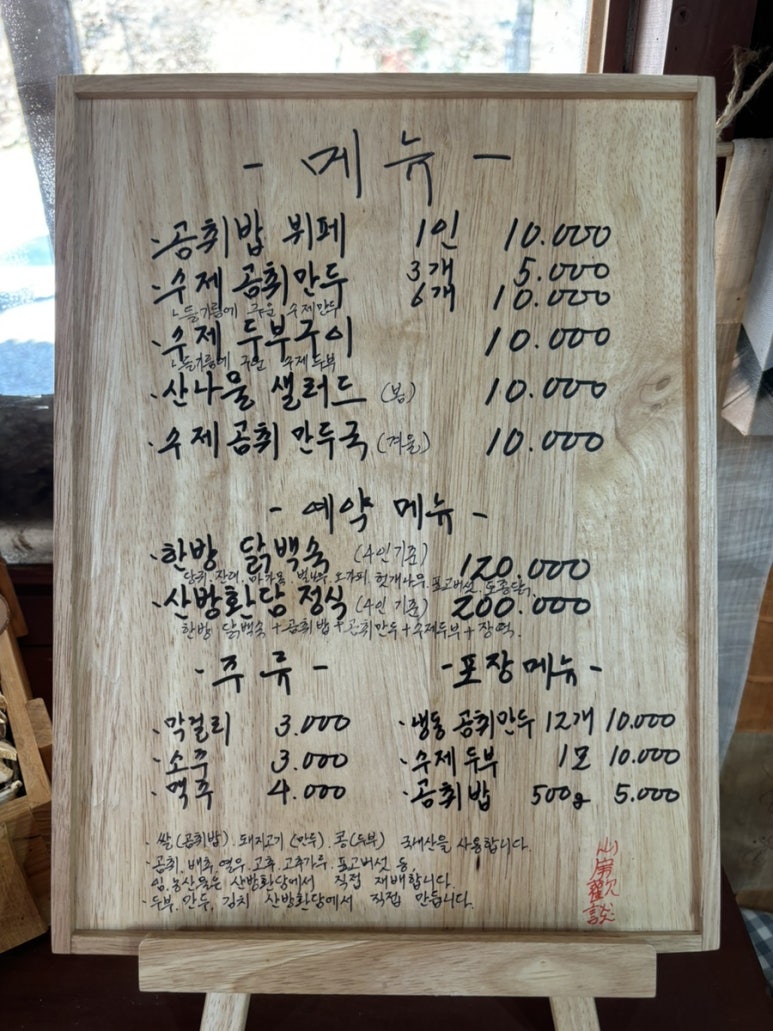 - 메뉴 -
· 곰취밥 뷔페 1인 10.000
· 수제 곰취만두 3개 5.000
6개 10.000
、들기름에 구운 수제만두
· 수제 두부구이 10.000
、들기름에 구운 수제두부
· 산나물 샐러드 (봄) 10.000
· 수제 곰취 만두국 (겨울) 10.000
- 예약 메뉴 -
· 한방 닭백숙 (4인기준) 120.000
당귀. 잔대. 마가목. 오가피. 헛개나무. 표고버섯. 토종닭.
· 산방환담 정식 (4인 기준) 200.000
한방 닭백숙 + 곰취밥 + 곰취만두 + 수제두부 + 장떡.
- 주류 -
· 막걸리 3.000
· 소주 3.000
· 맥주 4.000
- 포장 메뉴 -
· 냉동 곰취만두 12개 10.000
· 수제 두부 1모 10.000
· 곰취밥 500g 5.000
· 쌀(곰취밥). 돼지고기(만두). 콩(두부) 국내산을 사용합니다.
· 곰취. 배추. 열무. 고추. 고추가루. 표고버섯 등,
임.농산물은 산방환담에서 직접 재배합니다.
· 두부. 만두. 김치 산방환담에서 직접 만듭니다.
山房歡談